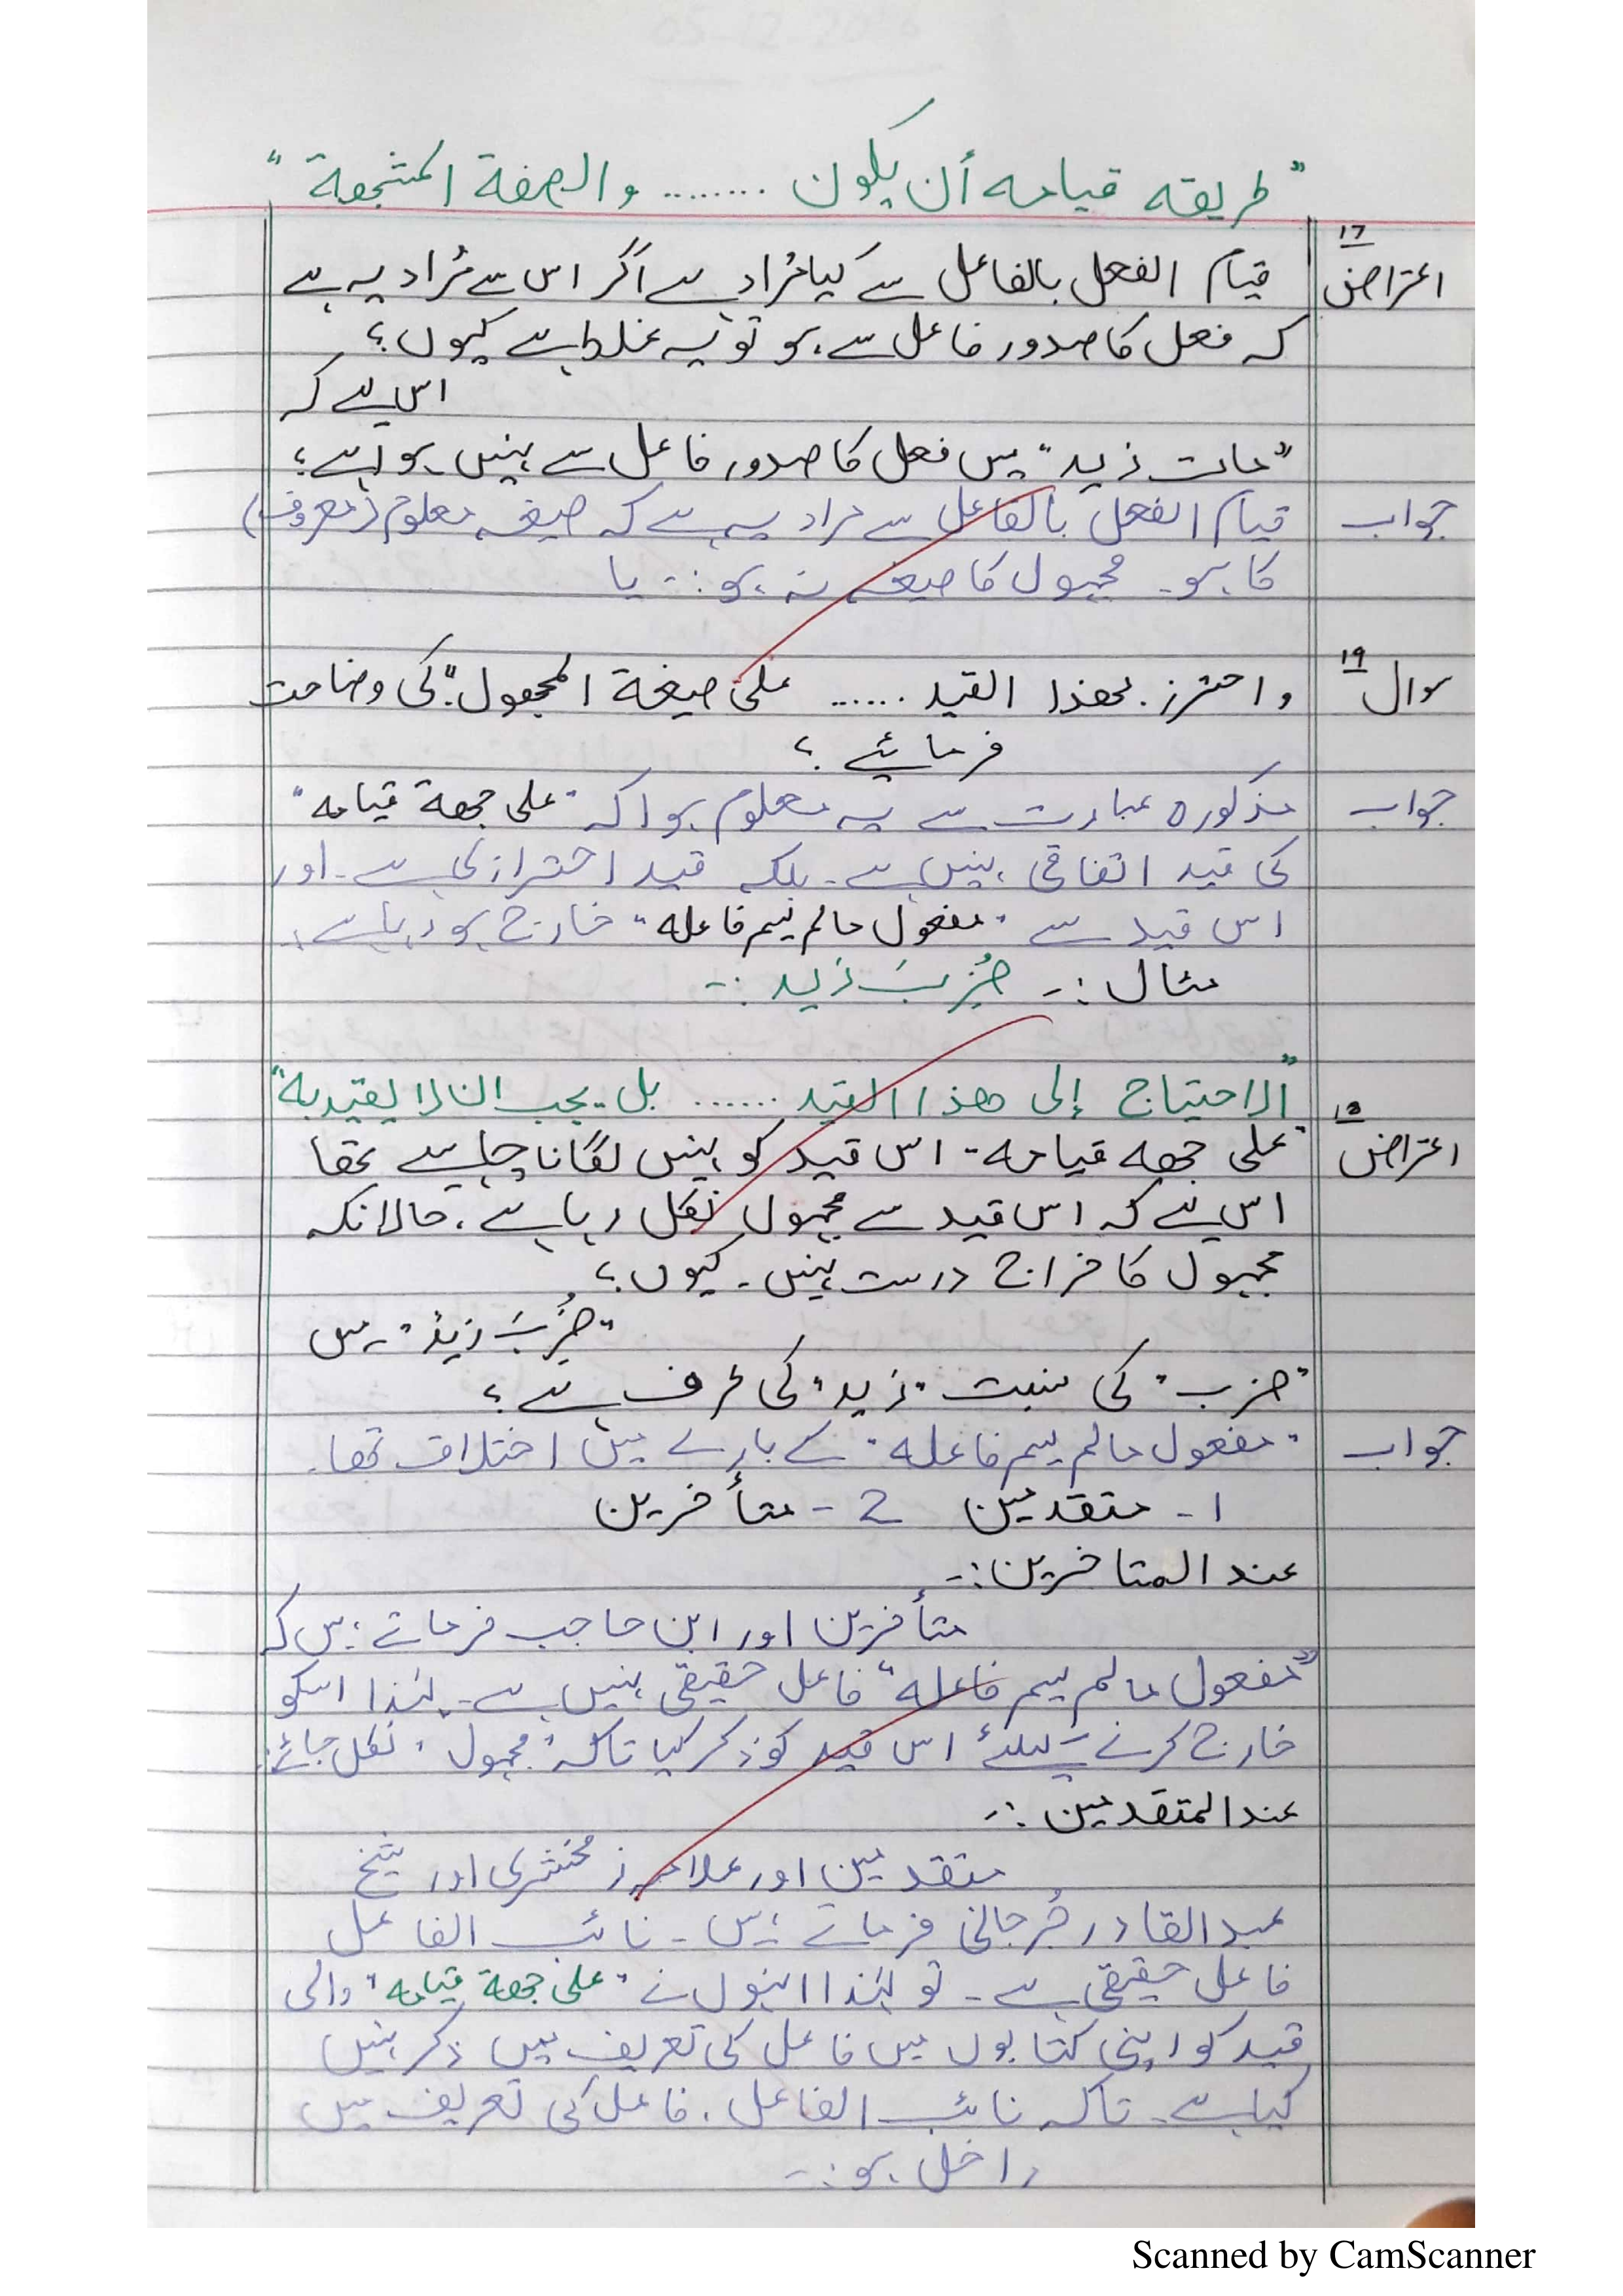 ”طریقه قیامه أن یکون ........ والصفة المشبهة“
اعتراض ۱۷ قیام الفعل بالفاعل سے کیا مُراد ہے اگر اس سے مُراد یہ ہے
کہ فعل کا صدور فاعل سے ہو تو یہ غلط ہے کیوں؟
اس لیے کہ
”مات زید“ میں فعل کا صدور فاعل سے نہیں ہوا ہے؛
جواب قیام الفعل بالفاعل سے مراد یہ ہے کہ صیغہ معلوم (معروف)
کا ہو۔ مجہول کا صیغہ نہ ہو:۔ یا
سوال ۱۹ واحترز بهذا القید ...... علیٰ صیغة المجهول“ کی وضاحت
فرمائیے؟
جواب مذکورہ عبارت سے یہ معلوم ہوا کہ ”علی جهة قیامه“
کی قید اتفاقی نہیں ہے۔ بلکہ قید احترازی ہے۔ اور
اس قید سے ”مفعول مالم یسم فاعله“ خارج ہو رہا ہے:
مثال :۔ ضُرِبَ زید :۔
”لا احتیاج إلی هذا القید ....... بل یجب ان لا یقید به“
اعتراض ۱۸ ”علی جهه قیامه“ اس قید کو نہیں لگانا چاہیے تھا
اس لیے کہ اس قید سے مجہول نکل رہا ہے، حالانکہ
مجہول کا خراج درست نہیں۔ کیوں؟
”ضُرِبَ زیدٌ“ میں
”ضرب“ کی نسبت ”زید“ کی طرف ہے؛
جواب ”مفعول مالم یسم فاعله“ کے بارے میں اختلاف تھا۔
1 - متقدمین 2 - متأخرین
عند المتاخرین :۔
متأخرین اور ابن حاجب فرماتے ہیں کہ
”مفعول مالم یسم فاعله“ فاعل حقیقی نہیں ہے۔ لہٰذا اسکو
خارج کرنے کیلئے اس قید کو ذکر کیا تاکہ ”مجہول“ نکل جائے:
عند المتقدمین :۔
متقدمین اور علامہ زمخشری اور شیخ
عبدالقادر جُرجانی فرماتے ہیں۔ نائب الفاعل
فاعل حقیقی ہے۔ تو لہٰذا انہوں نے ”علی جهة قیامه“ والی
قید کو اپنی کتابوں میں فاعل کی تعریف میں ذکر نہیں
کیا ہے۔ تاکہ نائب الفاعل، فاعل کی تعریف میں
داخل ہو:۔
Scanned by CamScanner